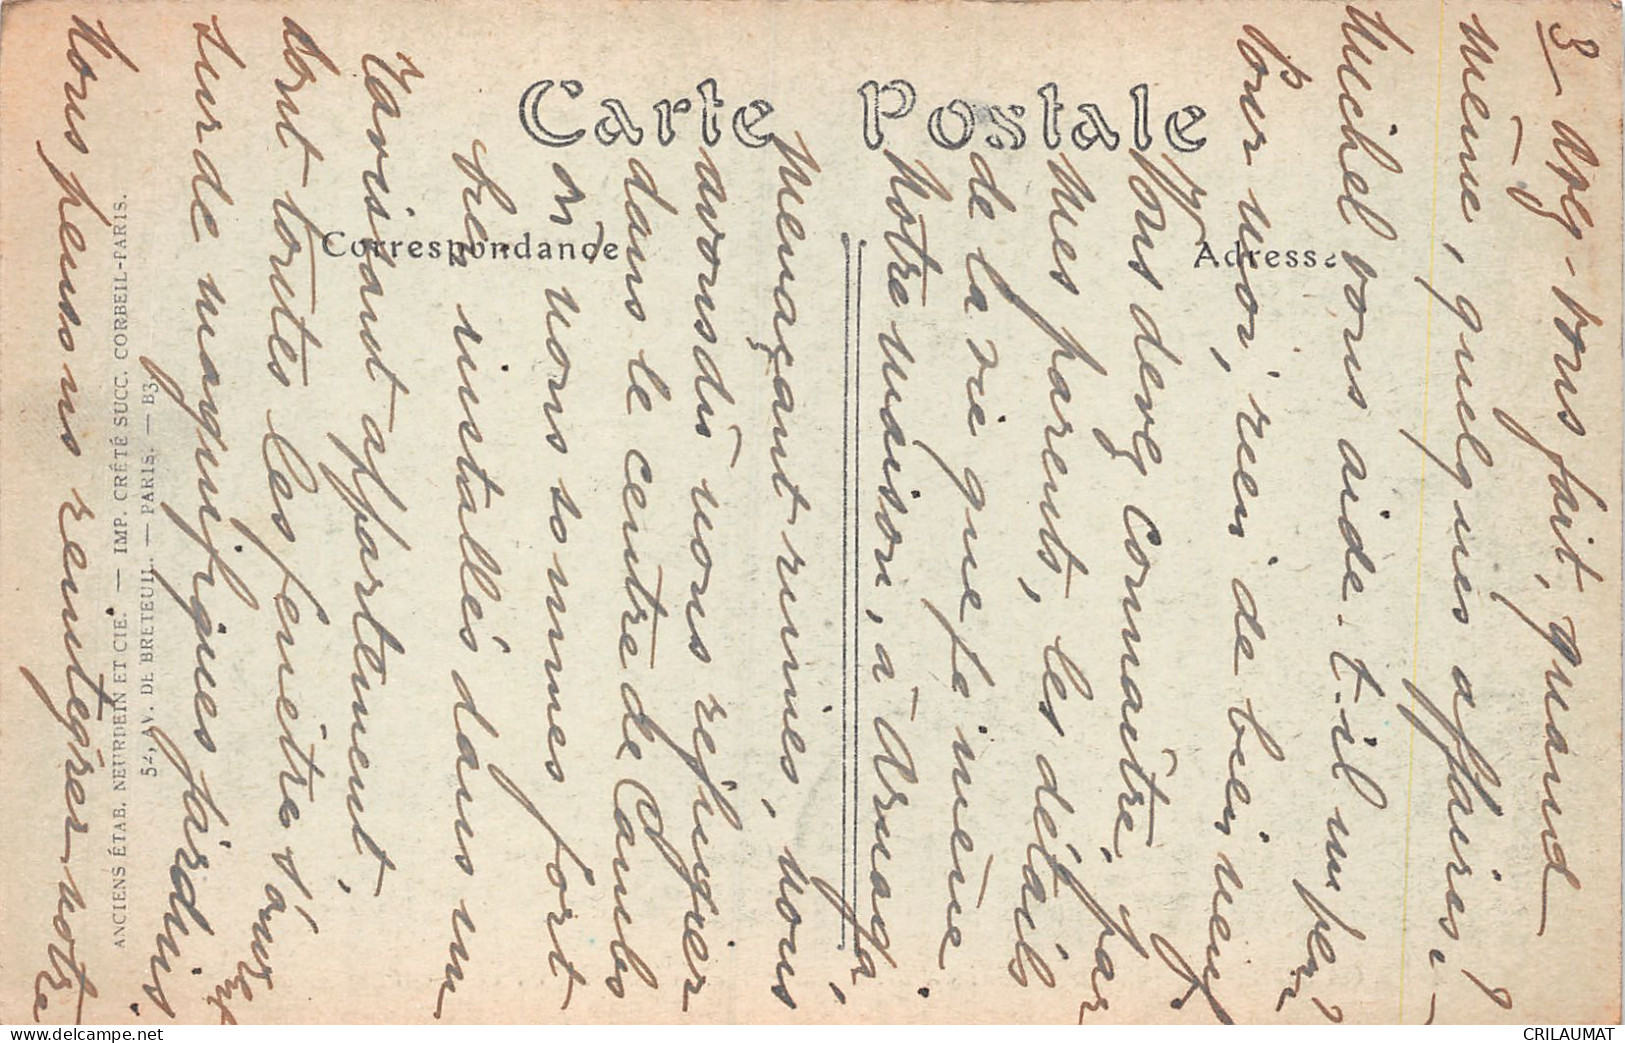 3- Avez-vous fait, quand
même, quelques affaires?
Michel vous aide-t-il un peu?
Pour moi, rien de bien neuf
Vous devez connaître, par
mes parents, les détails
de la vie que je mène.
Notre maison, à
menaçant ruines, nous
avons dû nous réfugier
dans le centre de
où nous sommes fort
bien installés dans un
ravissant appartement,
dont toutes les fenêtres
sur de magnifiques jardins.
Nous pensons réintégrer notre
Carte Postale
Correspondance
Adresse
ANCIENS ÉTAB. NEURDEIN ET CIE. — IMP. CRÉTÉ SUCC. CORBEIL-PARIS.
52, AV. DE BRETEUIL. — PARIS. — B3.
delcampe.net
CRILAUMAT